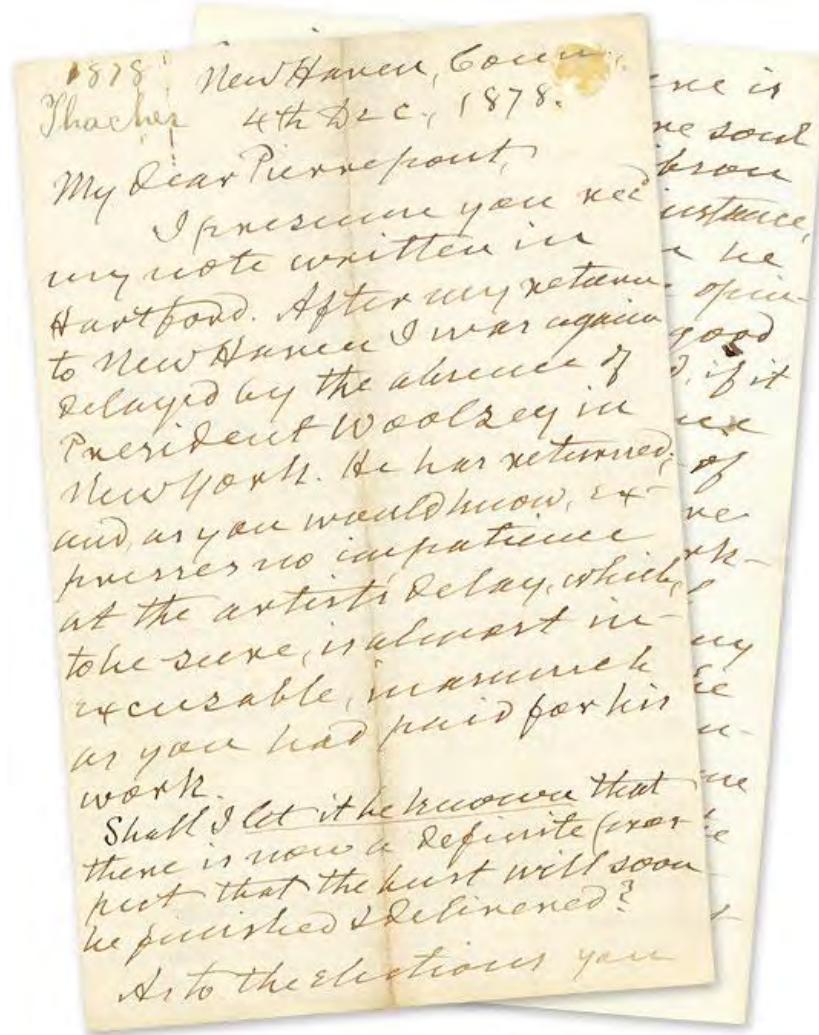 1878 New Haven, Conn.
Thacher 4th Dec., 1878.
My dear Pierrepont,
I presume you rec'd
my note written in
Hartford. After my return
to New Haven I was again
delayed by the absence of
President Woolsey in
New York. He has returned,
and, as you would know, ex-
presses no impatience
at the artist's delay, which,
to be sure, is almost in-
excusable, inasmuch
as you had paid for his
work.
Shall I let it be known that
there is now a definite pros-
pect that the bust will soon
be finished & delivered?
As to the elections you
is
soul
instance,
he
opin-
good
if it
of
my